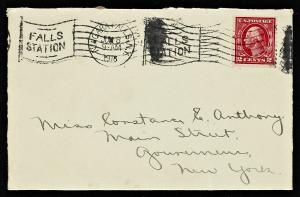 FALLS
STATION
1915
FALLS
STATION
U.S. POSTAGE
2 CENTS 2
Miss Constance E. Anthony
Main Street.
Gouverneur,
New York.